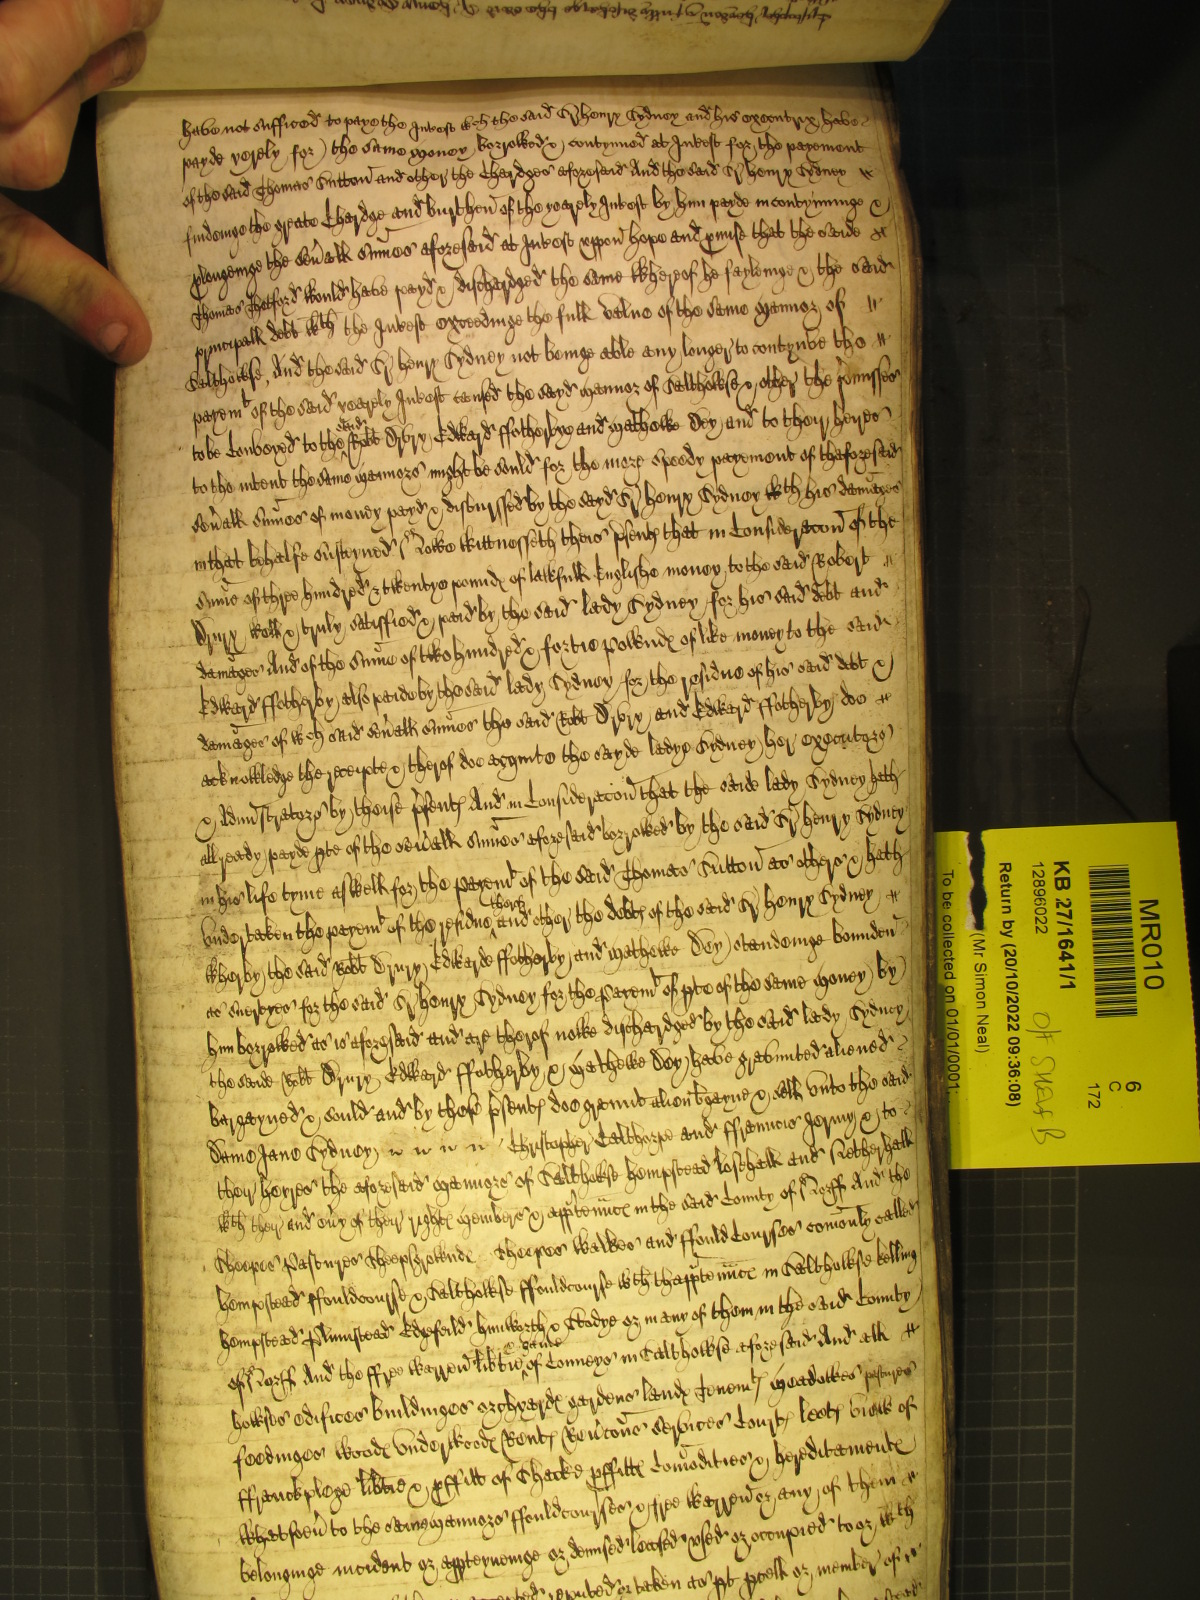 have not sufficed to paye the Intrest wch the said Sr henry Sydney and his executrix have
payde yerely for the same money borrowed & contynued at Intrest for the payement
of the said Thomas Sutton and other the Chardges aforesaid And the said Sr henry Sydney
findeinge the greate Chardge and burthen of the yearely Intrest by him payde in contynuinge &
plongeinge the seuall Sumes aforesaid at Intrest uppon hope and pmise that the saide
Thomas Thetford would have payd & dischardged the same Whereof he fayleinge & the said
principall debt wth the Intrest exceedinge the full value of the same mannor of
Salthowse, And the said Sr henry Sydney not beinge able any longer to contynue the
payemt of the said yearely Intrest caused the sayd mannor of Salthowse & other the pmisses
to be Conveyed to the said Robt Drury Edward ffotherbye and Mathewe Dey and to their heires
to the intent the same mannors might be sould for the more speedy payement of thaforesaid
seuall Sumes of money payd & disbursed by the sayd Sr henry Sydney wth his damages
in that behalfe susteyned Nowe wittnesseth theis psents that in Consideracon of the
Sume of three hundred & twentye pounds of lawfull Englishe money to the said Robert
Drury well & truly satisfied & paid by the said lady Sydney for his said debt and
damages And of the Sume of two hundred & fortie pownds of like money to the said
Edward ffotherby also paide by the said lady Sydney for the residue of his said debt &
damages of wch said seuall Sumes the said Robt Drury and Edward ffotherby doe
acknowledge the receipte & therof doe acquite the sayde ladye Sydney her executors
& Administrators by theise psents And in Consideracon that the saide lady Sydney hath
allready payde pte of the seuall Sumes aforesaid borrowed by the said Sr henry Sydney
in his life tyme aswell for the payemt of the said Thomas Sutton as others & hath
undertaken the payemt of the residue therof and other the debts of the said Sr henry Sydney
wherby the said Robt Drury Edwarde ffotherby and Mathewe Dey standeinge bounden
as suertyes for the said Sr henry Sydney for the payemt of pte of the same money by
him borrowed as is aforesaid and are therof nowe dischardged by the said lady Sydney
the saide Robt Drury Edward ffotherby & Mathewe Dey have graunted aliened
bargayned & sould and by these psents doe graunt alien bgayne & sell unto the said
Dame Jane Sydney Christopher Calthorpe and ffrauncis Jermy & to
their heyres the aforesaid mannors of Salthowse hempstead losehall and Netherhall
wth their and euy of their rights members & apptennces in the said County of Norff And the
Sheepes Pastures Sheepsgrownds Sheepes walkes and ffould Courses comonly called
hempstead ffouldcourse & Salthowse ffouldcourse wth thapptennces in Salthowse kelling
hempstead Plumstead Edgefeild hunworth & Bodye or in any of them in the said County
of Norff And the ffree warren libtie & game of Conneys in Salthowse aforesaid And all
howses edifices buildinges orchyards gardens lands Tenemts meadowes pastures
feedinges woods underwoods Rents Reucons services Courts leets viewe of
ffranckpledge libties & pffitt of Shacke pffitts Comodities & hereditaments
whatsoeu to the same mannors ffouldcourses & free warren or any of them
belonginge incident or apperteyneinge or demised leased used or occupied to or wth
reputed or taken as pt pcell or member of
MR010
KB 27/1641/1
12896022
Return by (20/10/2022 09:36:08)
(Mr Simon Neal)
To be collected on 01/01/0001:
6
C
172